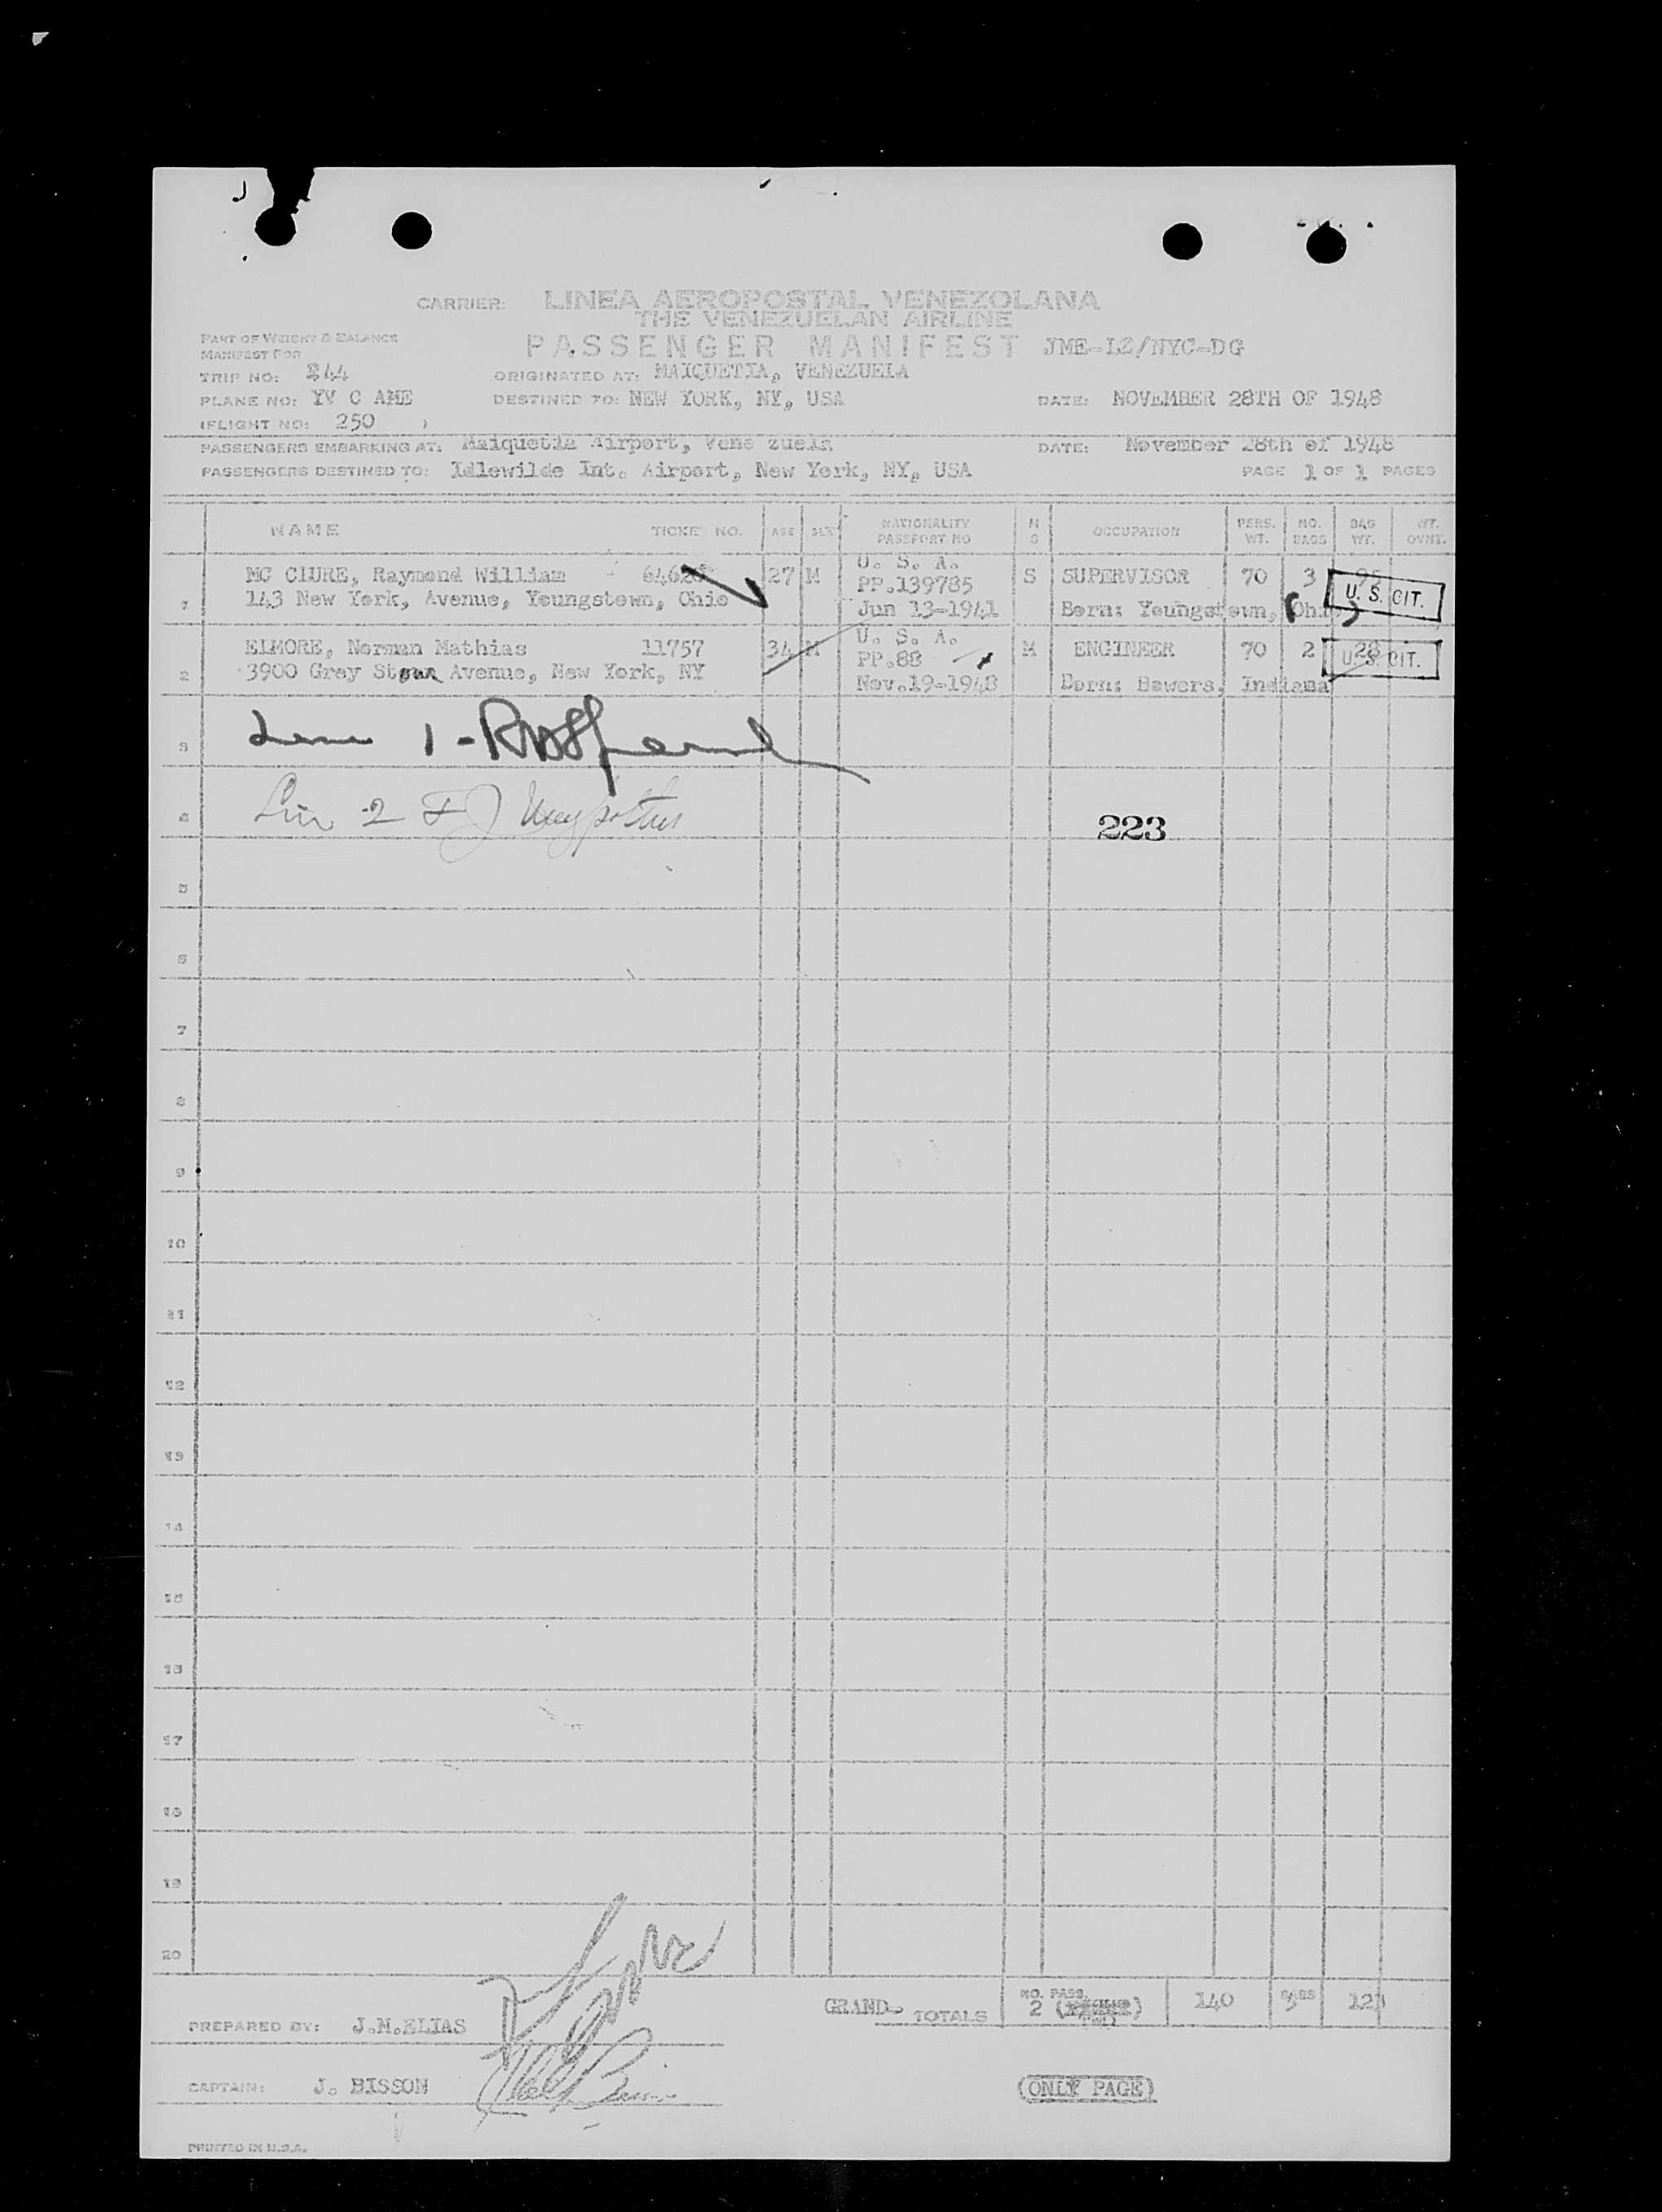 CARRIER: LINEA AEROPOSTAL VENEZOLANA
THE VENEZUELAN AIRLINE
PART OF WEIGHT & BALANCE
MANIFEST FOR
PASSENGER MANIFEST JME-LZ/NYC-DG
TRIP NO: 244 ORIGINATED AT: MAIQUETIA, VENEZUELA
PLANE NO: YV C AME DESTINED TO: NEW YORK, NY, USA DATE: NOVEMBER 28TH OF 1948
(FLIGHT NO: 250 )
PASSENGERS EMBARKING AT: Maiquetia Airport, Vene zuela DATE: November 28th of 1948
PASSENGERS DESTINED TO: Idlewilde Int. Airport, New York, NY, USA PAGE 1 OF 1 PAGES
NAME TICKET NO. AGE SEX NATIONALITY PASSPORT NO M S OCCUPATION PERS. WT. NO. BAGS BAG WT. WT. OVHT.
U. S. A.
MC CLURE, Raymond William 27 M PP.139785 S SUPERVISOR 70 3 95 U. S. CIT.
1 143 New York, Avenue, Youngstown, Ohio Jun 13-1941 Born: Youngstown, Ohio
U. S. A.
ELMORE, Norman Mathias 11757 34 M PP.88 M ENGINEER 70 2 28 U. S. CIT.
2 3900 Grey Avenue, New York, NY Nov.19-1948 Born: Bowers, Indiana
3 1 -
4 Line 2 223
5
6
7
8
9
10
11
12
13
14
15
16
17
18
19
20
GRAND- TOTALS NO. PASS. 2 (TWO) 140 BAGS 5 123
PREPARED BY: J.M.ELIAS
CAPTAIN: J. BISSON (ONLY PAGE)
PRINTED IN U.S.A.